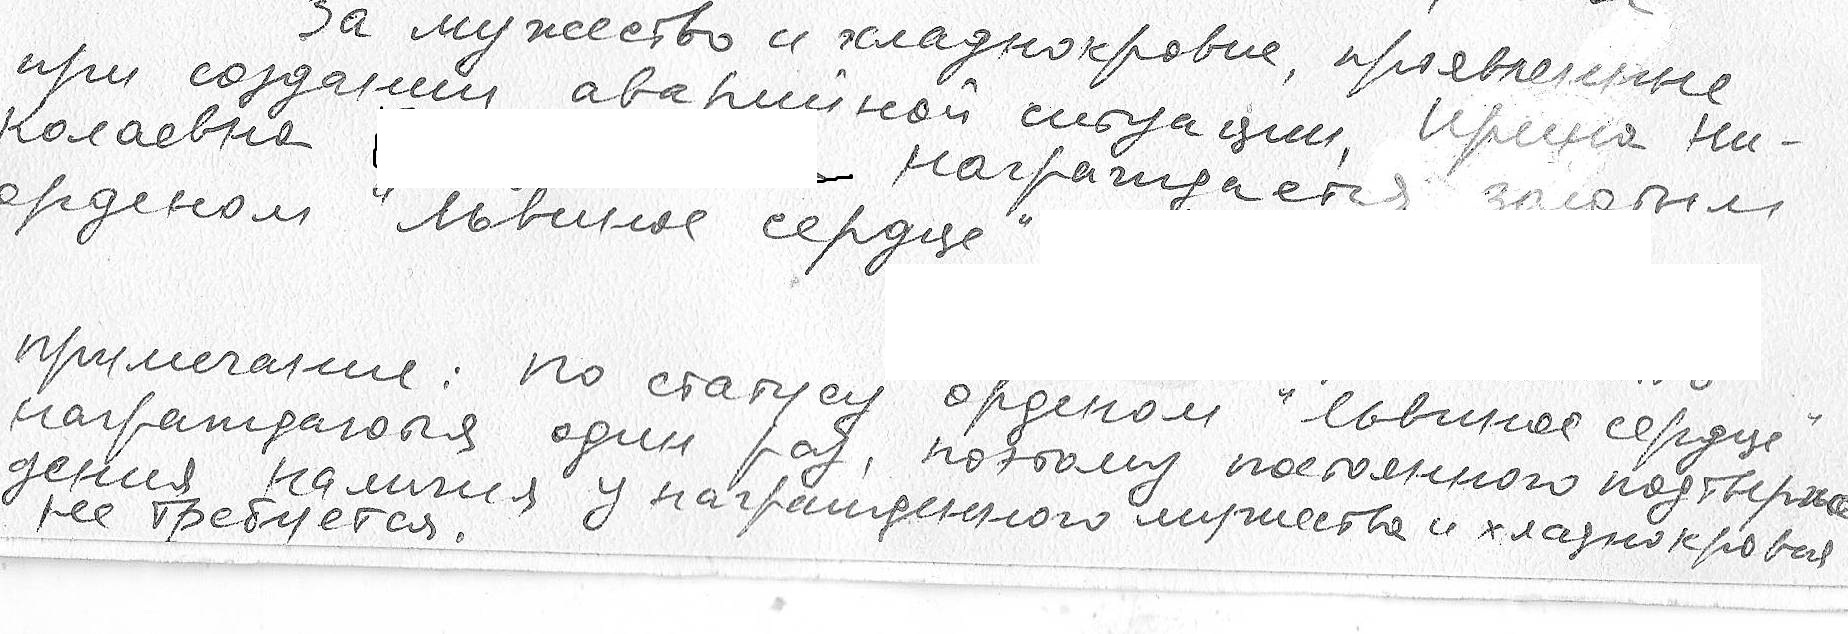 За мужество и хладнокровие, проявленные
при создании аварийной ситуации, Ирина Ни-
колаевна награждается золотым
орденом "Львиное сердце"
примечание: по статусу орденом "Львиное сердце"
награждаются один раз, поэтому постоянного подтверж
дения наличия у награжденного мужества и хладнокровия
не требуется.